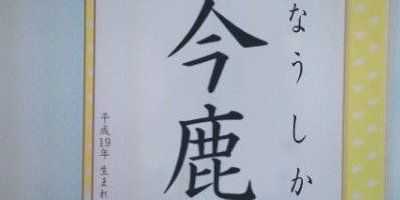 なうしか
今鹿
平成19年 生まれ